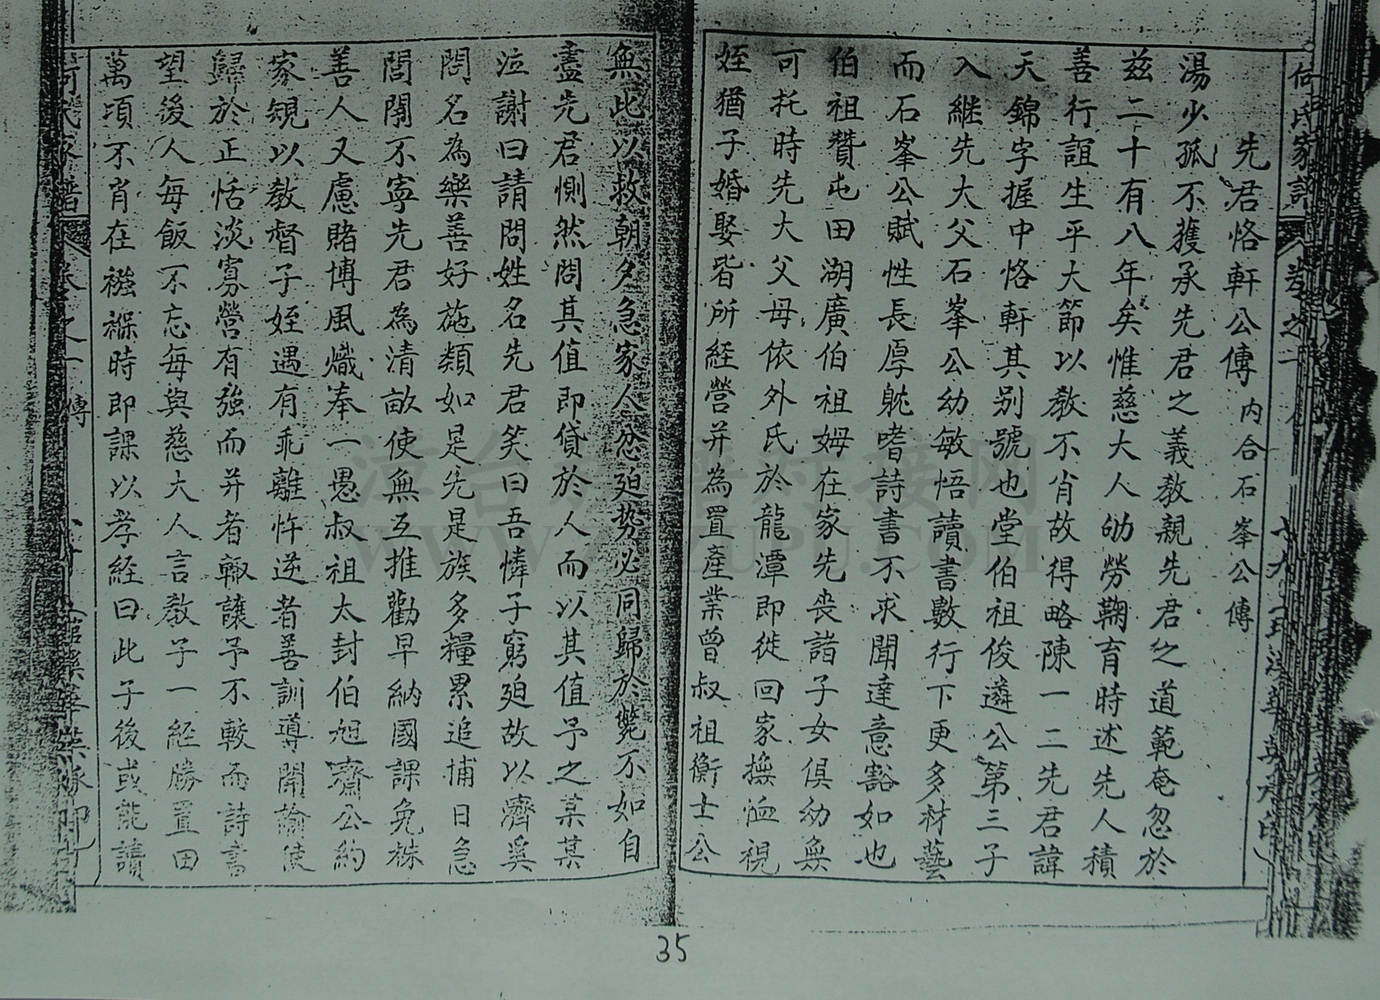 何氏家譜 卷之一
先君恪軒公傳 內合石峯公傳
湯少孤不獲承先君之義教親先君之道範奄忽於
茲二十有八年矣惟慈大人劬勞鞠育時述先人積
善行誼生平大節以教不肖故得略陳一二先君諱
天錦字握中恪軒其別號也堂伯祖俊遴公第三子
入継先大父石峯公幼敏悟讀書數行下更多材藝
而石峯公賦性長厚躭嗜詩書不求聞達意豁如也
伯祖贊屯田湖廣伯祖姆在家先喪諸子女俱幼無
可托時先大父母依外氏於龍潭即徙回家撫恤視
姪猶子婚娶皆所経營并為置產業曾叔祖衡士公
無此以救朝夕急家人忿廹势必同歸於斃不如自
盡先君惻然問其值即貸於人而以其值予之某某
泣謝曰請問姓名先君笑曰吾憐子窮廹故以濟奚
問名為樂善好施類如是先是族多糧累追捕日急
閭閻不寧先君為清畝使無互推勸早納國課免株
善人又慮賭博風熾奉一愚叔祖太封伯旭齋公約
家規以教督子姪遇有乖離忤逆者善訓導開諭使
歸於正恬淡寡營有強而并者輙讓予不較而詩書
望後人每飯不忘每與慈大人言教子一経勝置田
萬頃不肖在襁褓時即課以孝経曰此子後或能讀
何氏家譜 卷之一 傳
35